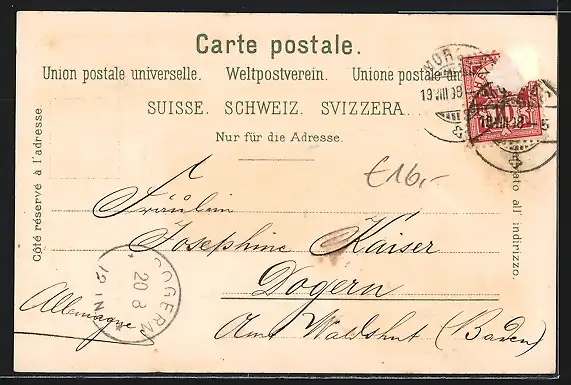 Carte postale.
Union postale universelle. Weltpostverein. Unione postale
SUISSE. SCHWEIZ. SVIZZERA.
Nur für die Adresse.
Côté réservé à l'adresse.
all' indirizzo.
19.VIII.98
€16,-
Fräulein
Josephine Kaiser
Dogern
Amt Waldshut (Baden)
Allemagne
DOGERN
20 8